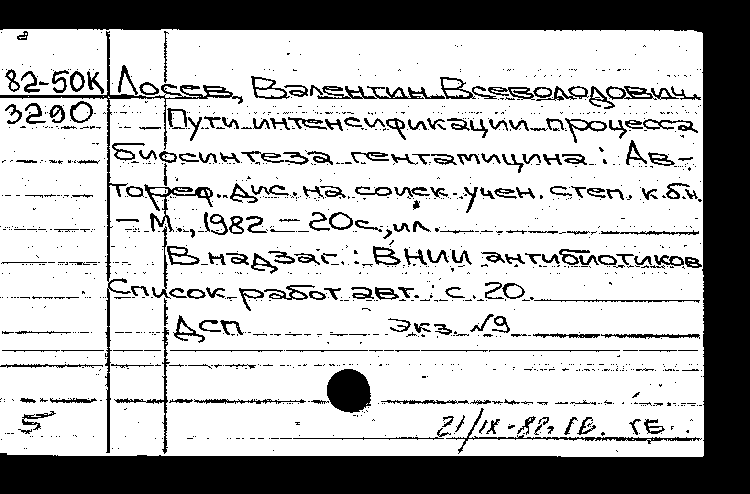 82-50К Лосев, Валентин Всеволодович.
3290 Пути интенсификации процесса
биосинтеза гентамицина : Ав-
тореф. дис. на соиск. учен. степ. к.б.н.
– М., 1982. – 20с., ил.
В надзаг.: ВНИИ антибиотиков
Список работ авт.: с. 20.
ДСП экз. №9
5 21/IX-82г. ГБ. ГБ.